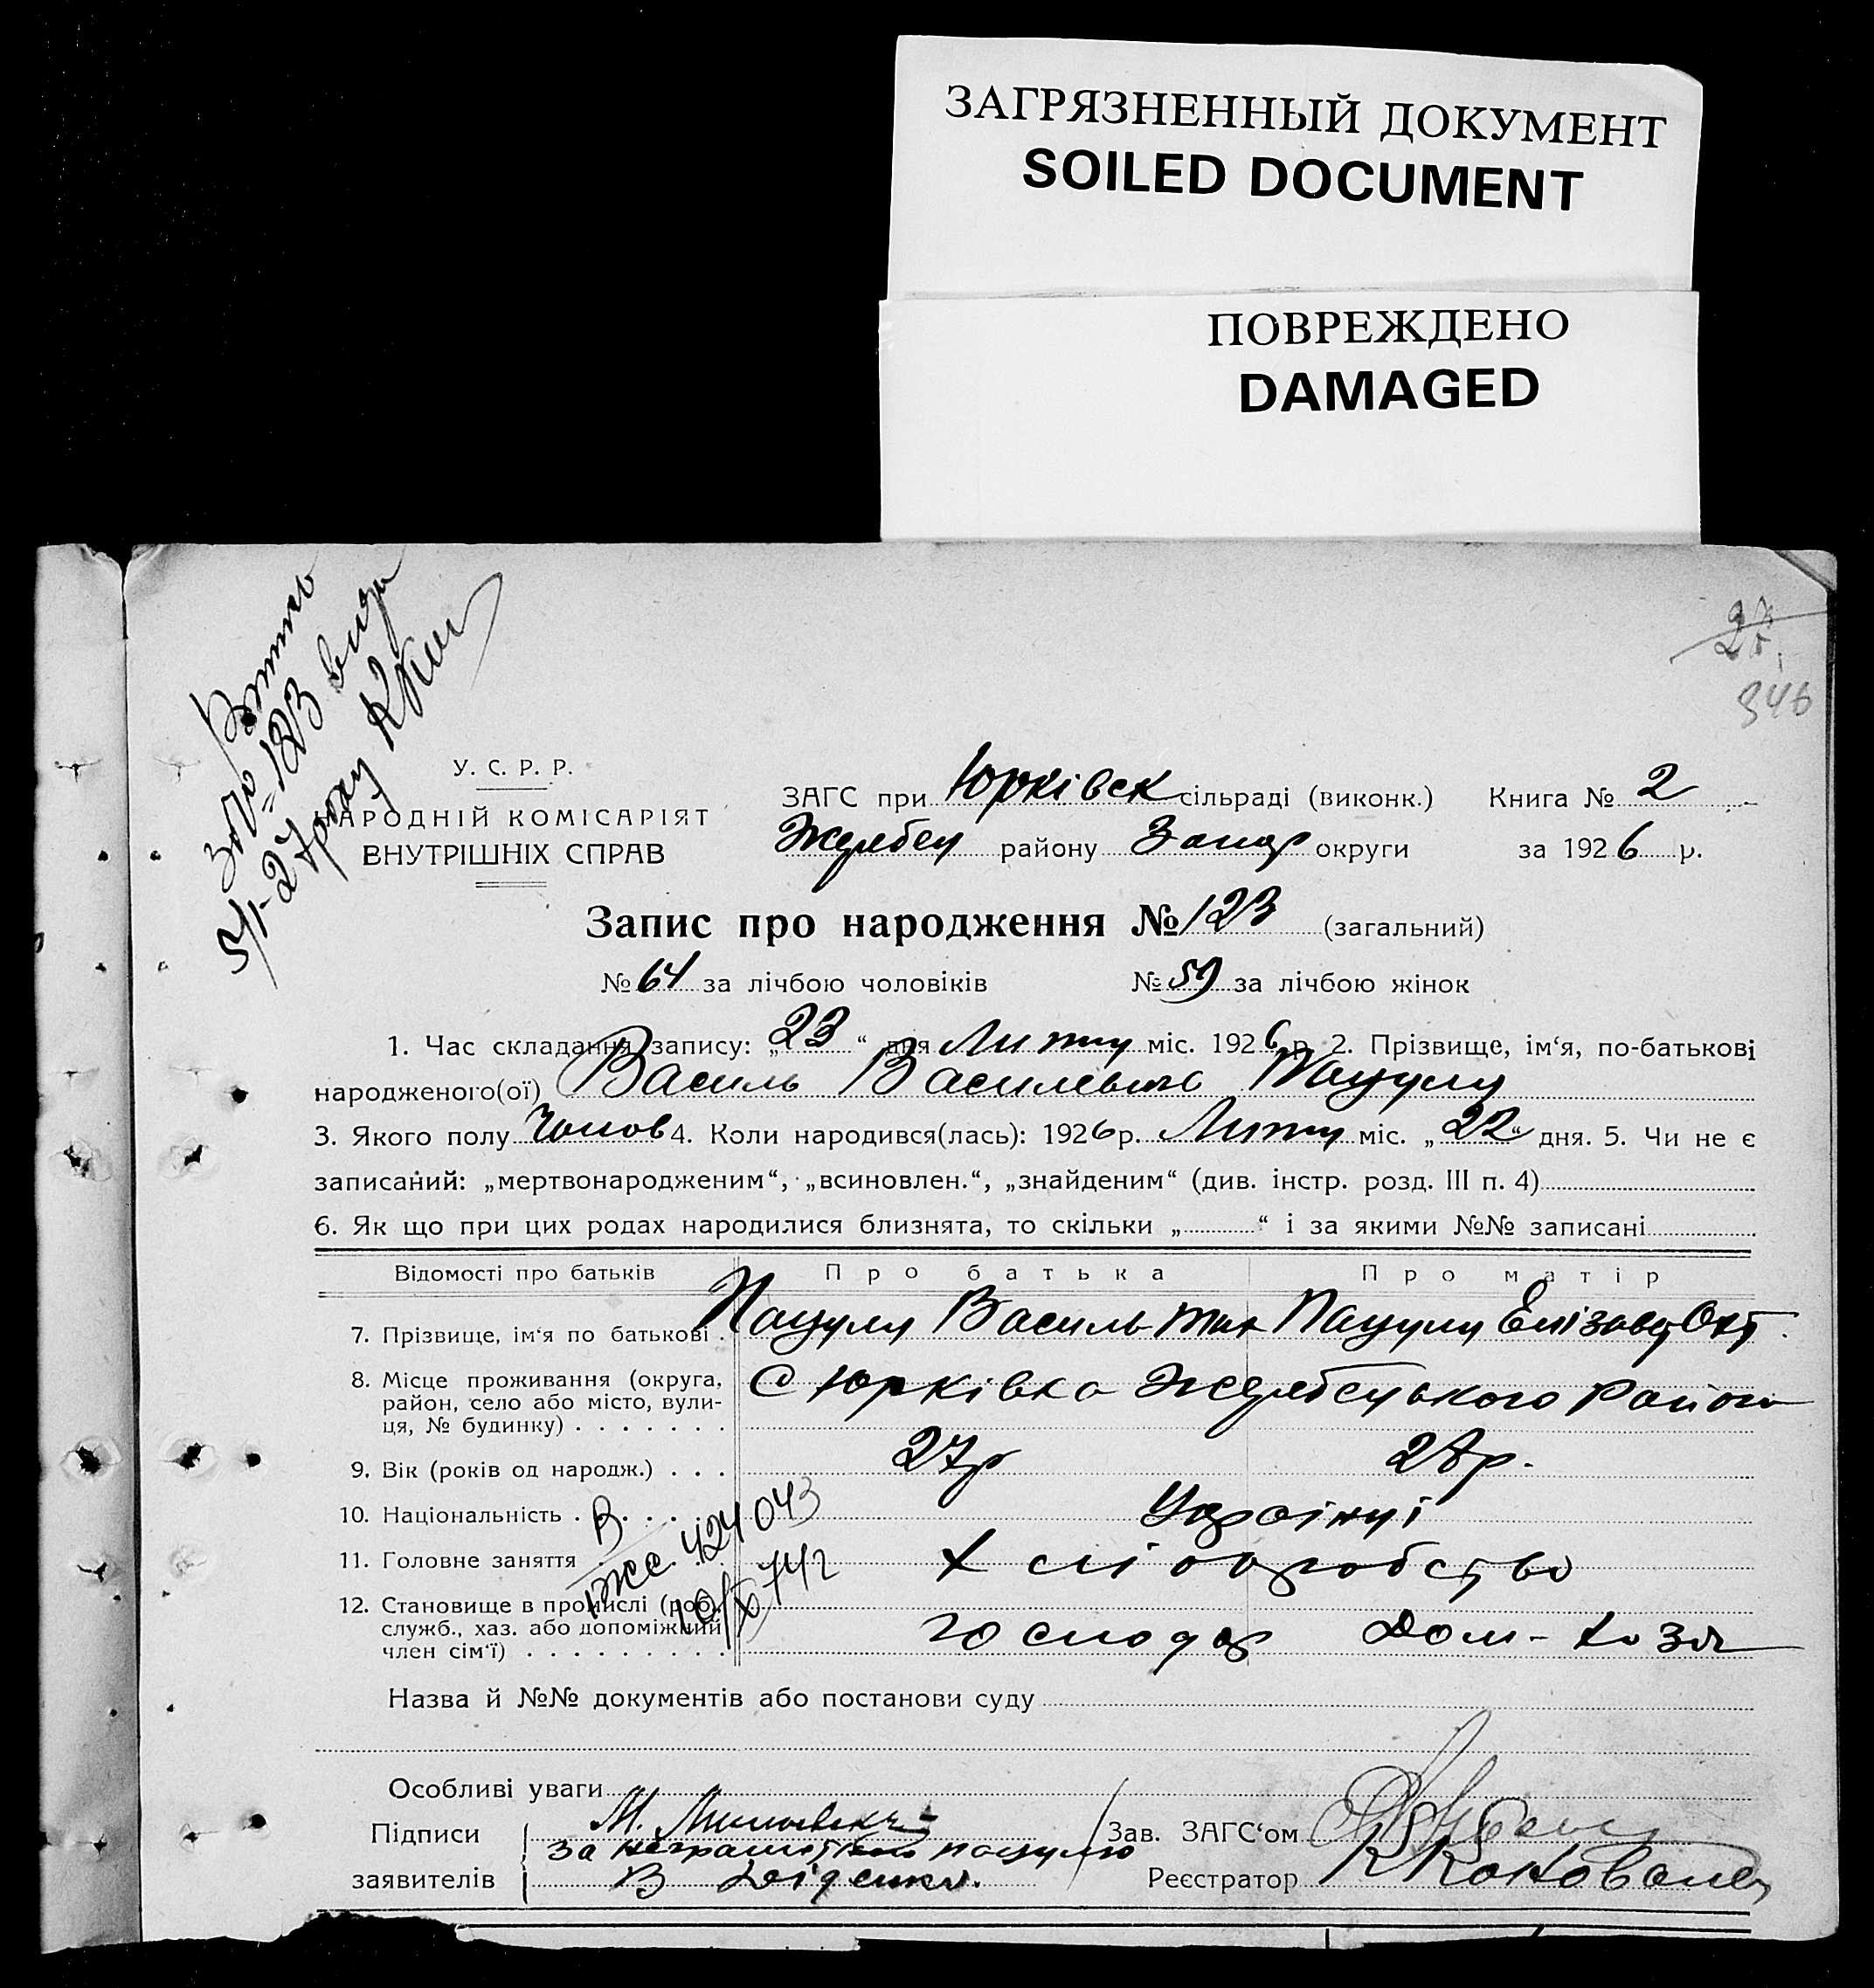 ЗАГРЯЗНЕННЫЙ ДОКУМЕНТ
SOILED DOCUMENT
ПОВРЕЖДЕНО
DAMAGED
346
У. С. Р. Р.
НАРОДНІЙ КОМІСАРІЯТ
ВНУТРІШНІХ СПРАВ
ЗАГС при Юрківск сільраді (виконк.) Книга № 2
Жеребец району Запор округи за 1926 р.
Запис про народження № 123 (загальний)
№ 64 за лічбою чоловіків № 59 за лічбою жінок
1. Час складання запису: „23“ дня Лютоу міс. 1926 р. 2. Прізвище, ім‘я, по-батькові
народженого(ої) Василь Васильович Пацулу
3. Якого полу Чолов 4. Коли народився(лась): 1926 р. Лютоу міс. „22“ дня. 5. Чи не є
записаний: „мертвонародженим“, „всиновлен.“, „знайденим“ (див. інстр. розд. III п. 4)
6. Як що при цих родах народилися близнята, то скільки „ “ і за якими №№ записані
Відомості про батьків Про батька Про матір
7. Прізвище, ім‘я по батькові Пацулу Василь Пацулу Єлізавет
8. Місце проживання (округа, район, село або місто, вулиця, № будинку) С Юрківка Жеребецького Району
9. Вік (років од народж.) 27р 28р.
10. Національність Українці
11. Головне заняття Хліборобство
В
424043
12. Становище в промислі (роб., служб., хаз. або допоміжний член сім‘ї) господар Дом-хозя
Назва й №№ документів або постанови суду
Особливі уваги
Підписи Зав. ЗАГС‘ом
за неграмотного Пацулю
заявителів В Діденко. Реєстратор К Коновалец